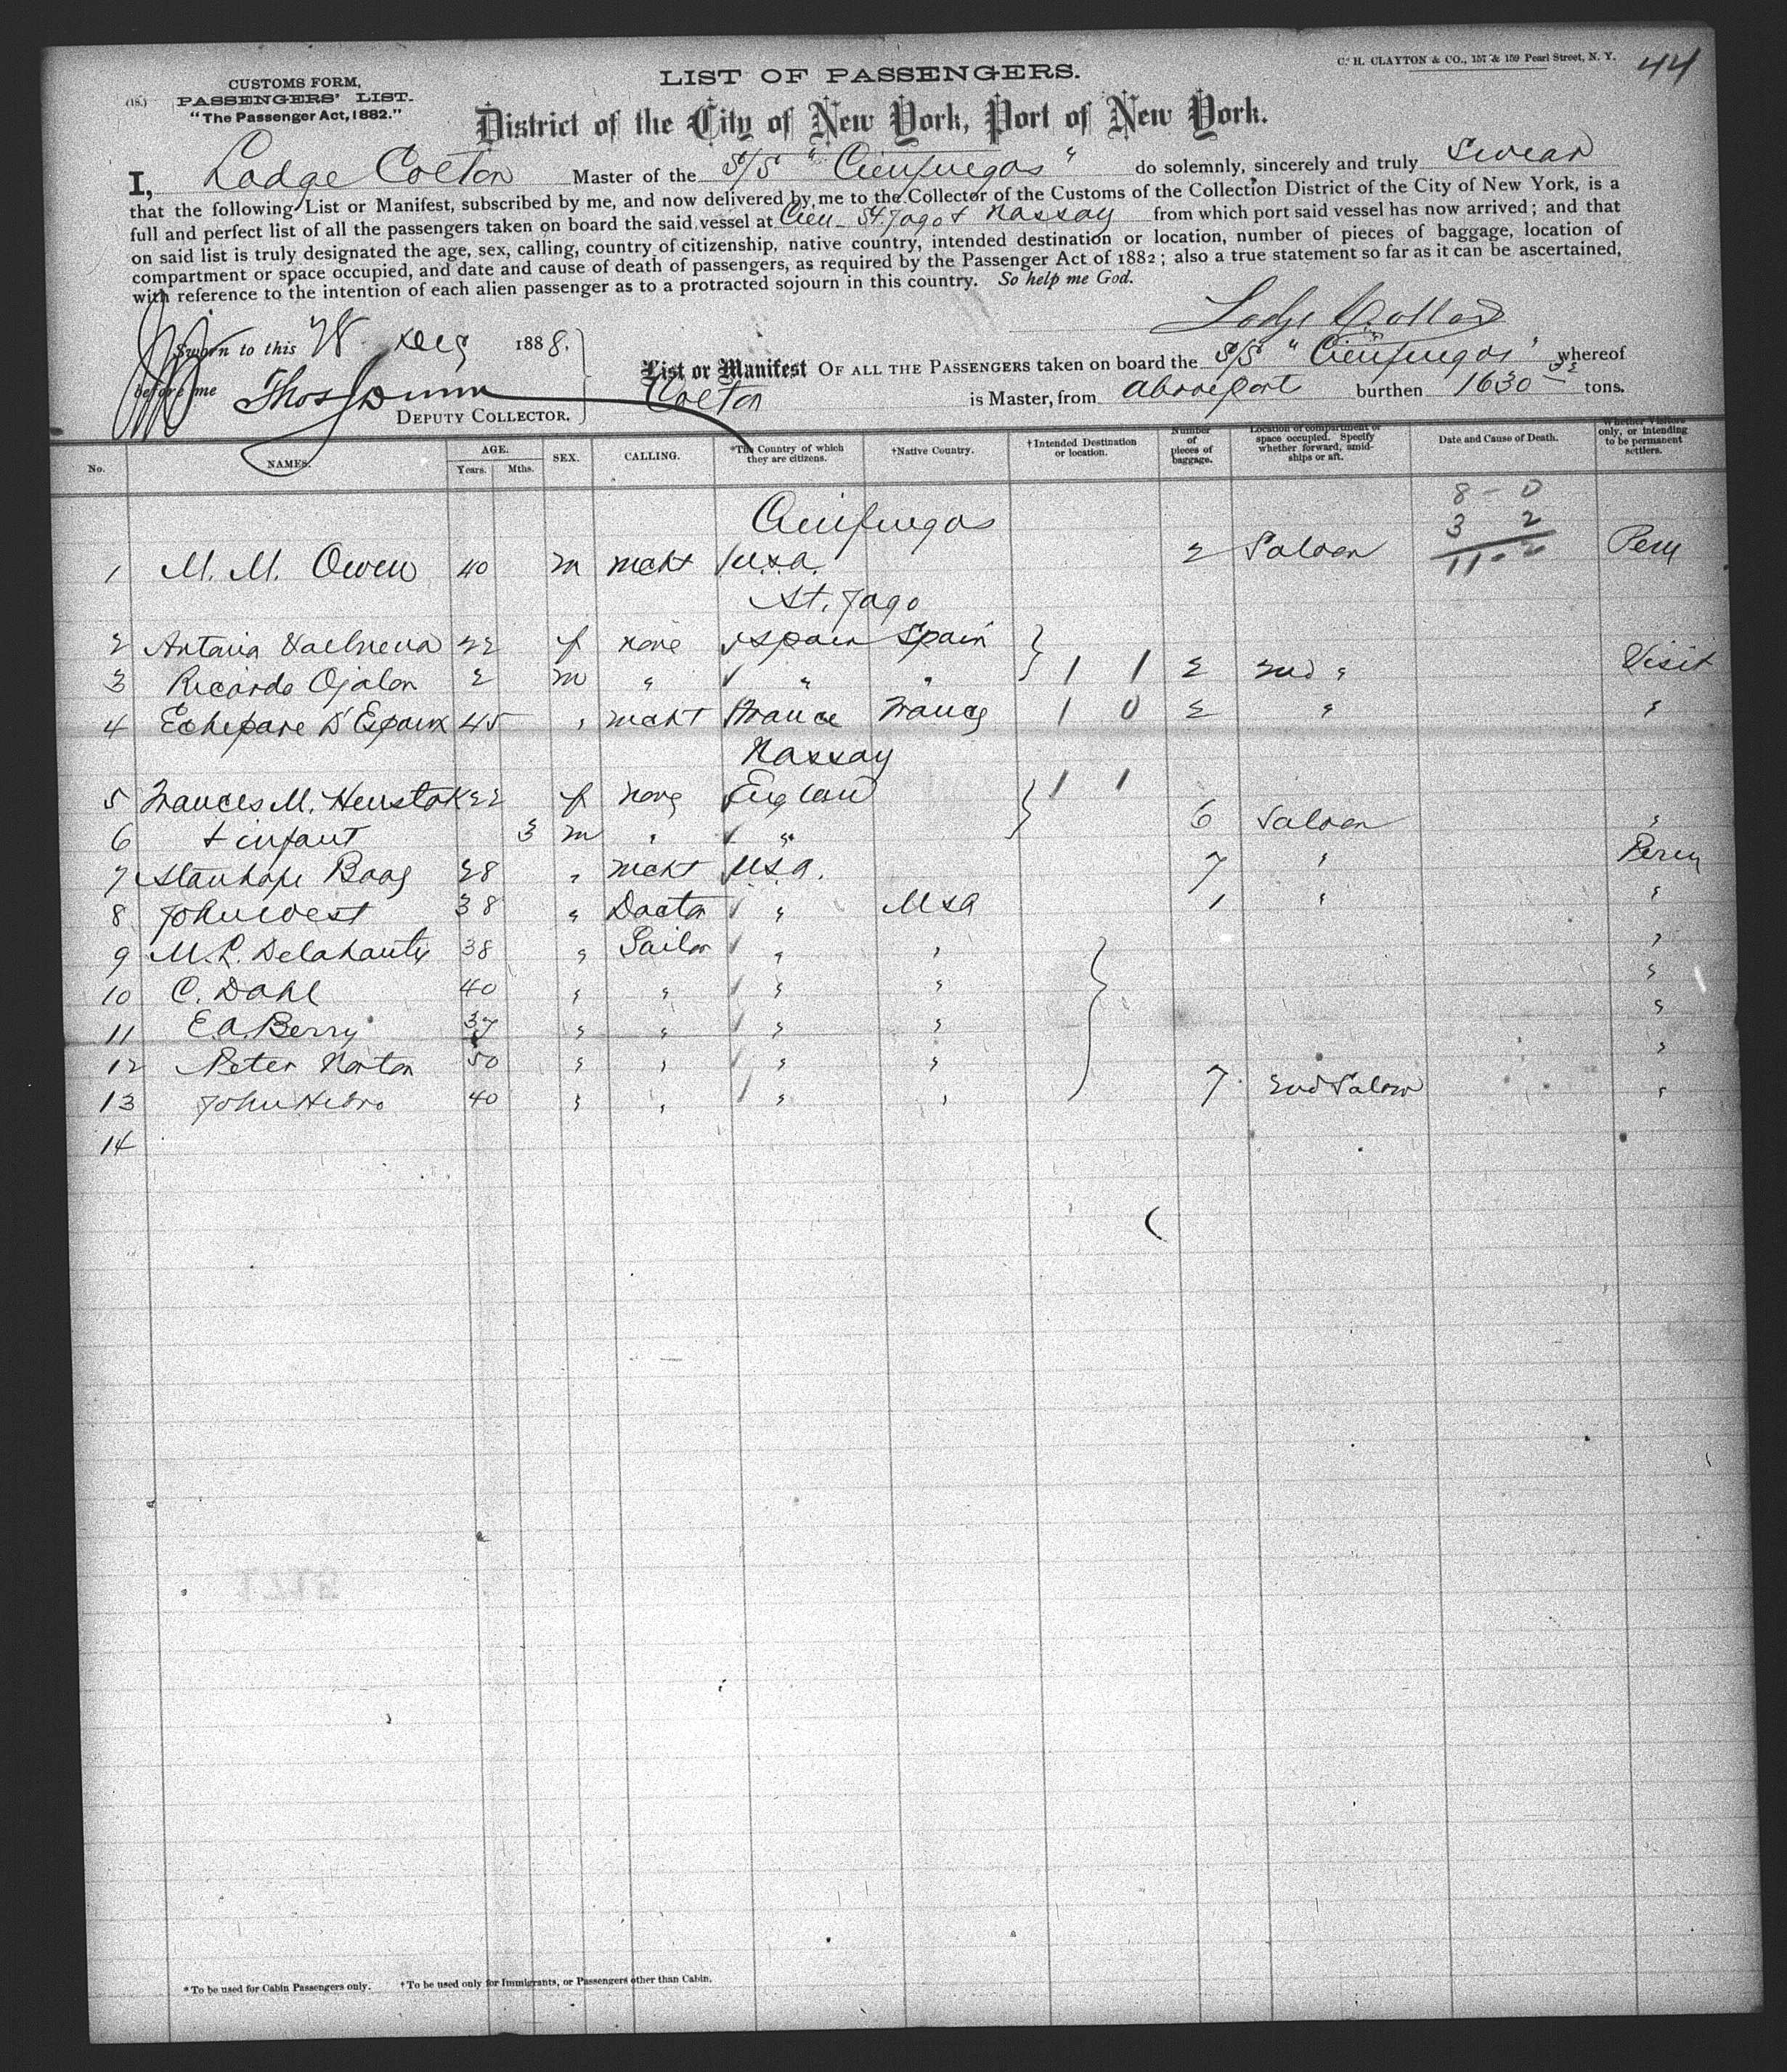 C. H. CLAYTON & CO., 157 & 159 Pearl Street, N. Y.
44
(18.)
CUSTOMS FORM,
PASSENGERS' LIST.
"The Passenger Act, 1882."
LIST OF PASSENGERS.
District of the City of New York, Port of New York.
I, Lodge Colton Master of the S/S "Cienfuegos" do solemnly, sincerely and truly Swear
that the following List or Manifest, subscribed by me, and now delivered by me to the Collector of the Customs of the Collection District of the City of New York, is a
full and perfect list of all the passengers taken on board the said vessel at Cien- St Jago & Nassay from which port said vessel has now arrived; and that
on said list is truly designated the age, sex, calling, country of citizenship, native country, intended destination or location, number of pieces of baggage, location of
compartment or space occupied, and date and cause of death of passengers, as required by the Passenger Act of 1882; also a true statement so far as it can be ascertained,
with reference to the intention of each alien passenger as to a protracted sojourn in this country. So help me God.
Lodge Colton
Sworn to this 28 1888.
before me Thos Dunn
DEPUTY COLLECTOR.
List or Manifest OF ALL THE PASSENGERS taken on board the S/S "Cienfuegos" whereof
Colton is Master, from above port burthen 1630 tons.
No. NAMES. AGE. Years. Mths. SEX. CALLING. *The Country of which they are citizens. †Native Country. †Intended Destination or location. Number of pieces of baggage. Location of compartment or space occupied. Specify whether forward, amidships or aft. Date and Cause of Death. Whether Visitors only, or intending to be permanent settlers.
8 - 0
Cienfuegos
3 2
11 - 2
1 M. M. Owen 40 m mcht U.S.a. 2 Saloon
St. Jago
2 22 f none Spain Spain
3 Ricardo Ojalon 2 m " " " 1 1 2 2nd " Visit
4 Echepare D'Epaux 45 " mcht France France 1 0 2 " "
Nassay
5 Frances M. 22 f none England 1 1
6 + infant 3 m " " 6 Saloon "
7 Stanhope Boag 28 " mcht USa. 7 "
8 John West 38 " Doctor " USa 1 " "
9 M. P. Delahanty 38 " Sailor " " "
10 C. Dahl 40 " " " " "
11 E. A. Berry 37 " " " " "
12 Peter Norton 50 " " " " "
13 John 40 " " " " 7 2nd Saloon "
14
*To be used for Cabin Passengers only. †To be used only for Immigrants, or Passengers other than Cabin.